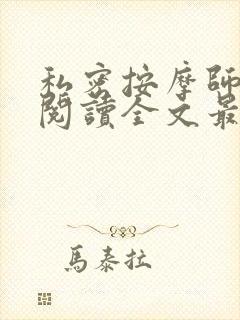 私密按摩師
閱讀全文最
馬泰拉